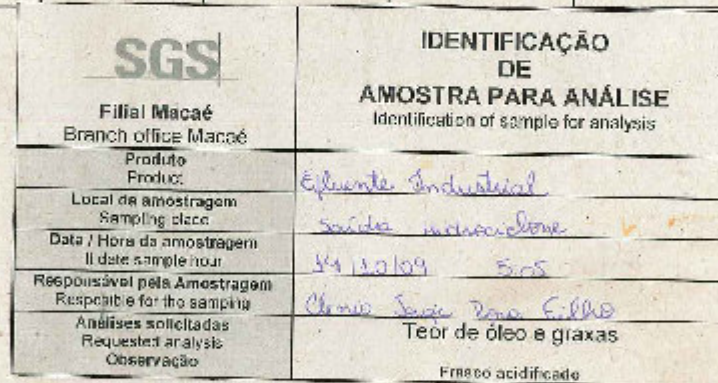 SGS
Filial Macaé
Branch office Macaé
IDENTIFICAÇÃO
DE
AMOSTRA PARA ANÁLISE
Identification of sample for analysis
Produto
Product
Efluente Industrial
Local da amostragem
Sampling place
Saída hidrociclone
Data / Hora da amostragem
date sample hour
14/10/09 5:05
Responsável pela Amostragem
Responsible for the samping
Filho
Análises solicitadas
Requested analysis
Teor de óleo e graxas
Observação
Frasco acidificado